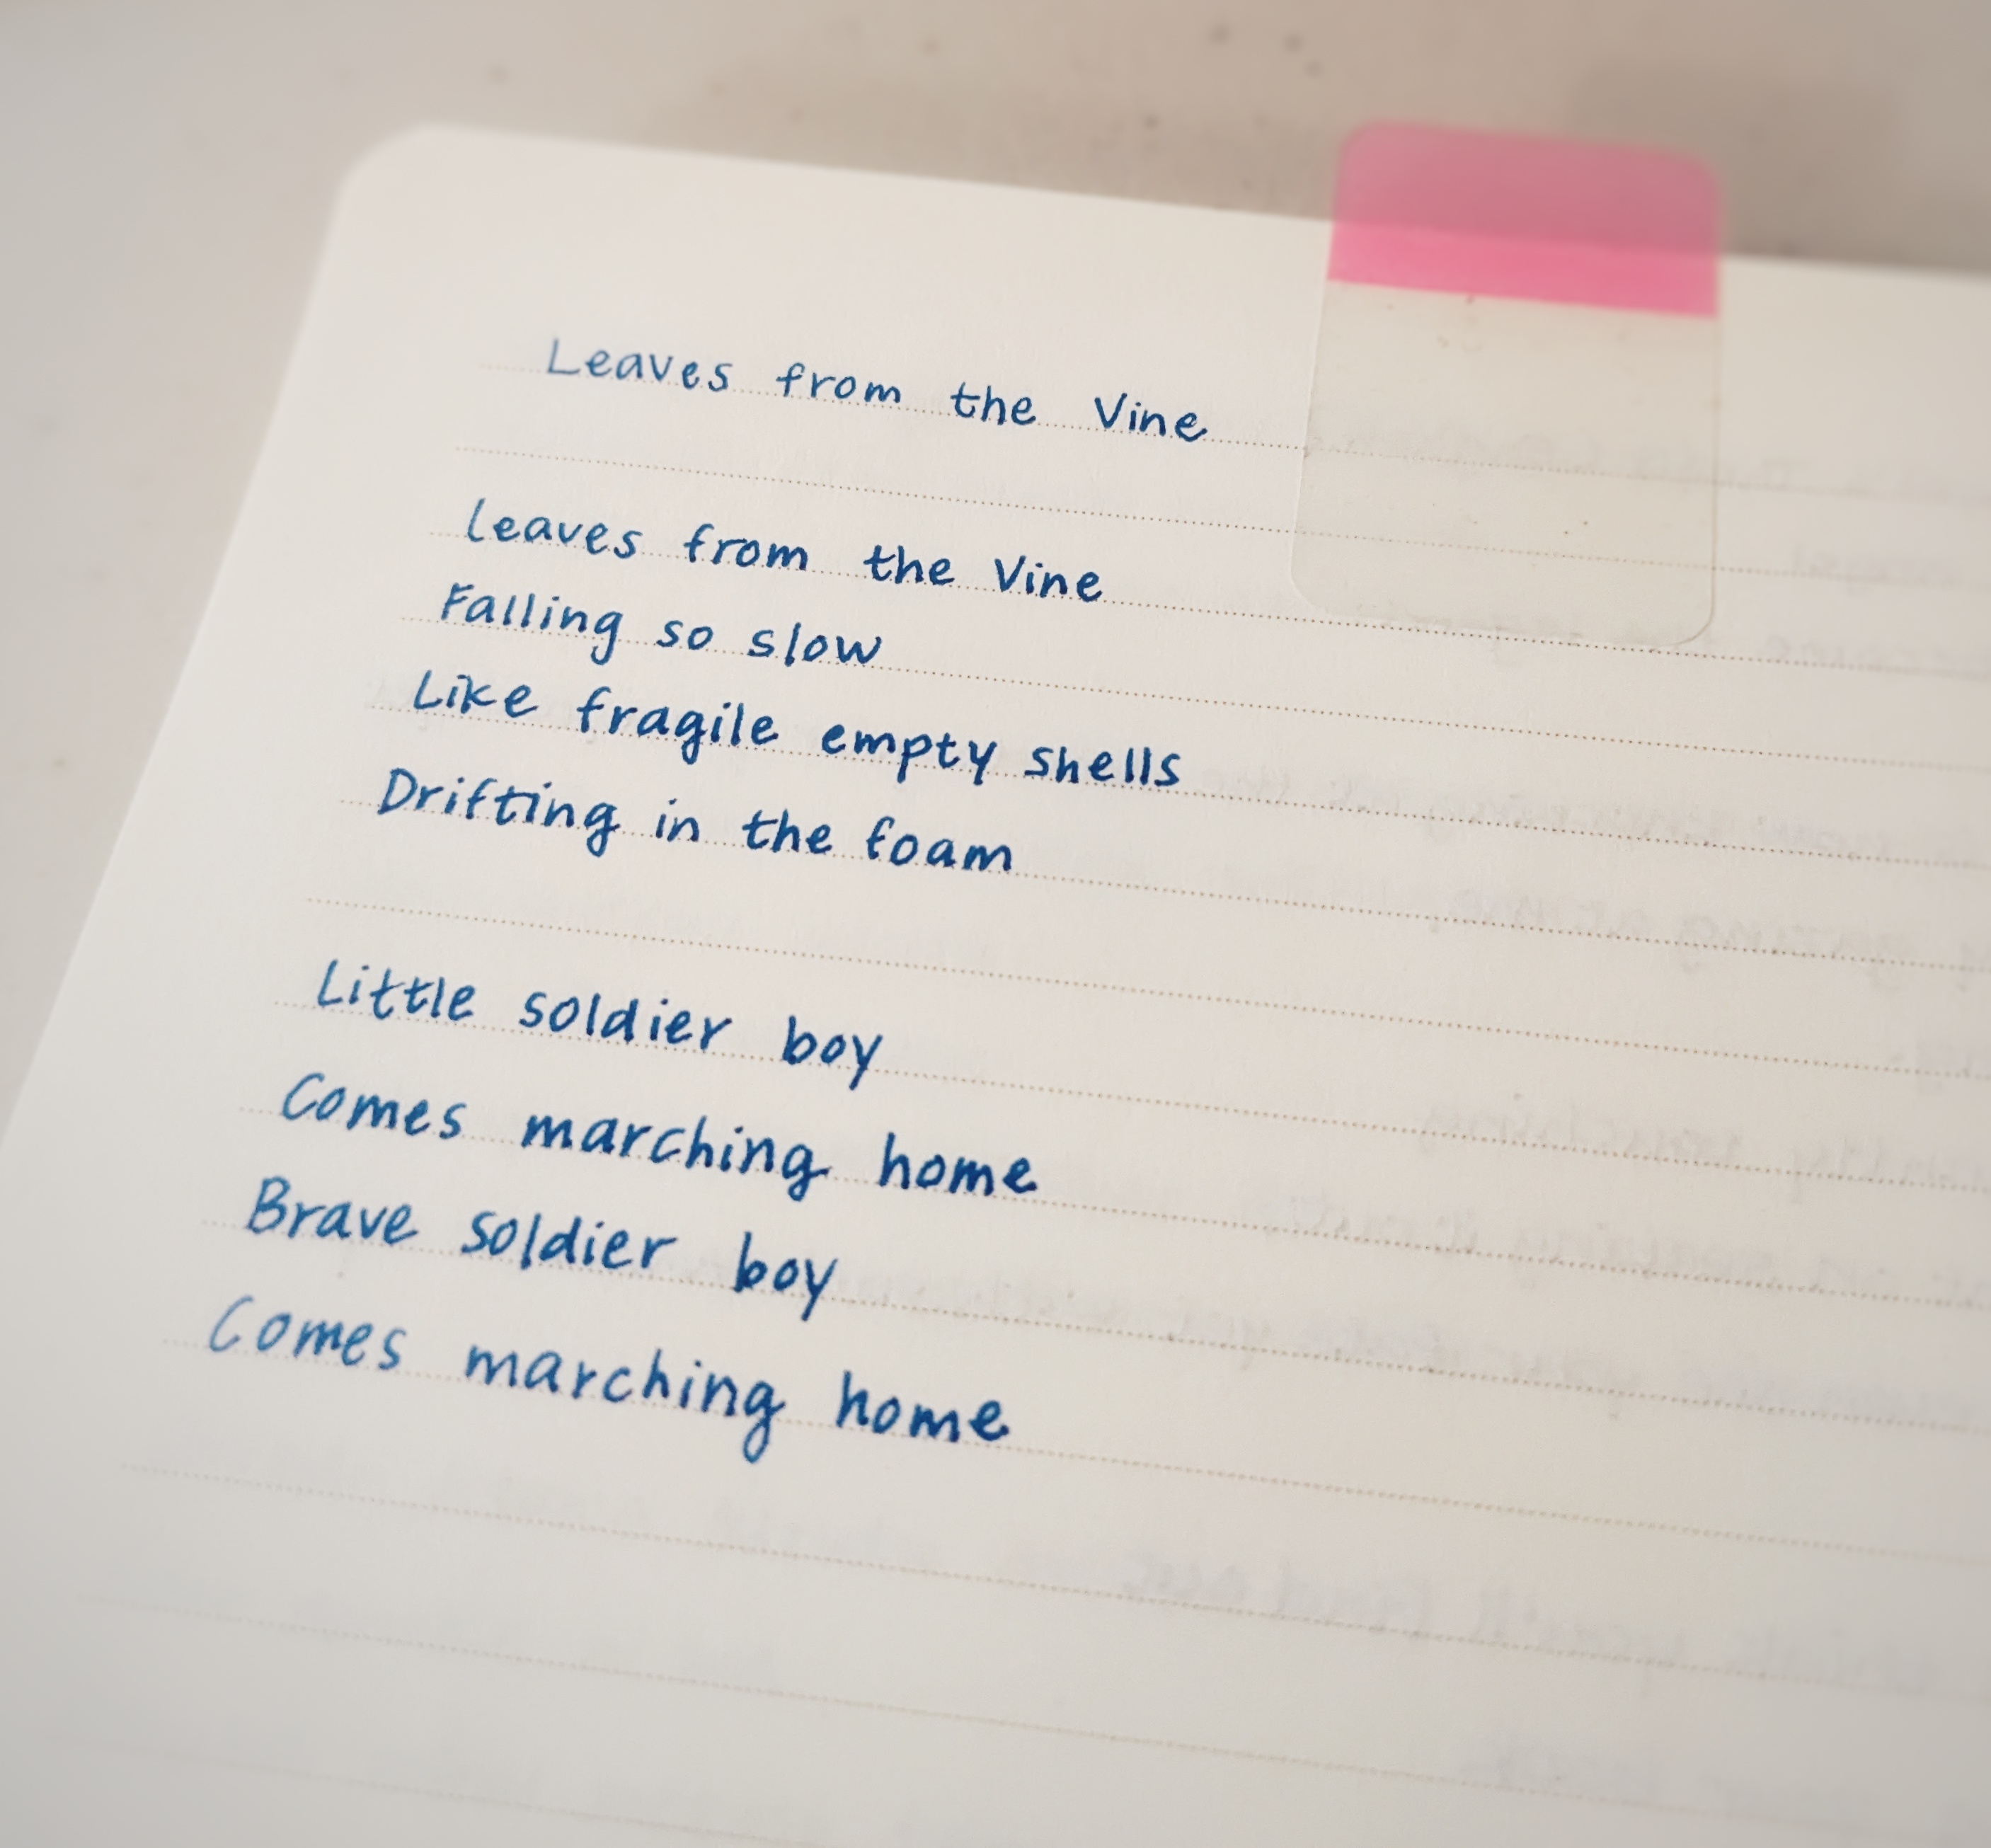 Leaves from the Vine
Leaves from the Vine
Falling so slow
Like fragile empty shells
Drifting in the foam
Little soldier boy
Comes marching home
Brave soldier boy
Comes marching home